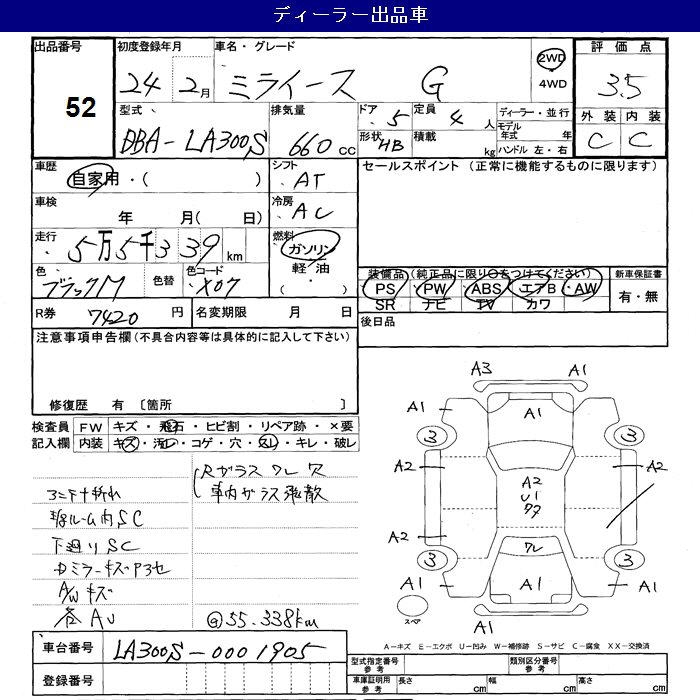 ディーラー出品車
出品番号 52
初度登録年月 24 2月
車名・グレード ミライース G
2WD 4WD
評価点 3.5
外装 内装
C C
型式 DBA-LA300S
排気量 660 cc
ドア 5 定員 4人
形状 HB 積載 kg
ディーラー・並行
モデル年式 年
ハンドル 左・右
車歴 自家用・( )
シフト AT
車検 年 月( 日)
冷房 AC
走行 5万5千339 km
燃料 ガソリン 軽油 ( ・ )
色 ブラックM 色替 色コード X07
セールスポイント (正常に機能するものに限ります)
装備品 (純正品に限り○をつけてください)
PS PW ABS エアB AW
SR ナビ TV カワ
新車保証書 有・無
R券 7420 円 名変期限 月 日
後日品
注意事項申告欄(不具合内容等は具体的に記入して下さい)
修復歴 有 〔箇所 〕
検査員記入欄
FW キズ・飛石・ヒビ割・リペア跡・×要
内装 キズ・汚レ・コゲ・穴・スレ・キレ・破レ
Rガラス ワレ 穴
車内ガラス飛散
下廻りSC
A/W キズ
各 AU
55.338km
A3 A1
A1 A1 A1
3 3
A2 A2
A2 U1
A2
ワレ
3 3
A1 A1 A1
スペア
A1
A-キズ E-エクボ U-凹み W-補修跡 S-サビ C-腐食 XX-交換済
車台番号 LA300S-0001905
登録番号
型式指定番号 参考 類別区分番号 参考
車庫証明用 参考 長さ cm 幅 cm 高さ cm